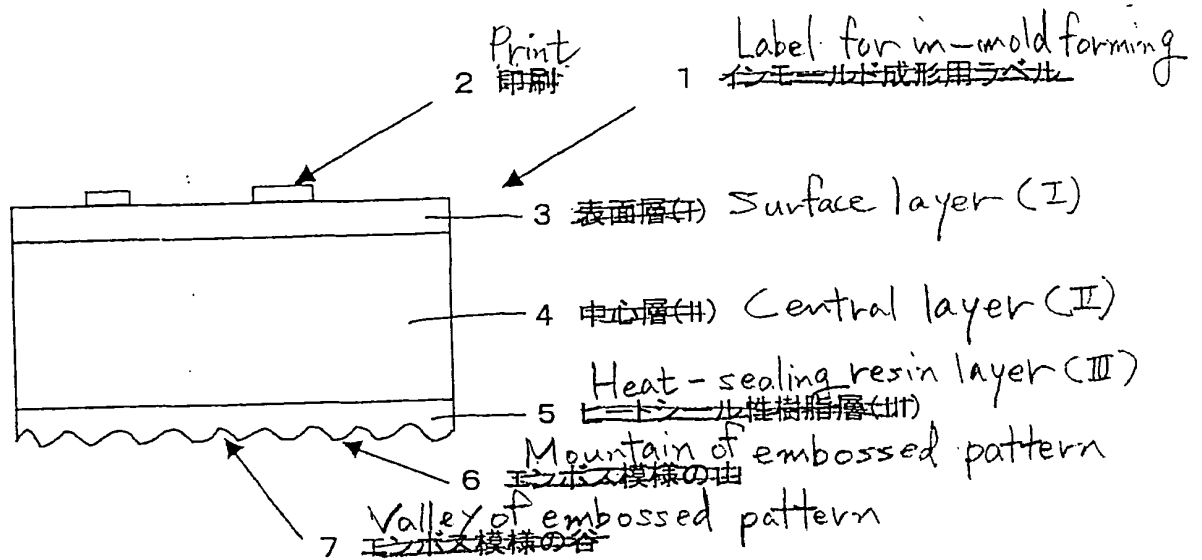 Print
2 印刷
Label for in-mold forming
1 インモールド成形用ラベル
3 表面層(I) Surface layer (I)
4 中心層(II) Central layer (II)
Heat-sealing resin layer (III)
5 ヒートシール性樹脂層(III)
Mountain of embossed pattern
6 エンボス模様の山
Valley of embossed pattern
7 エンボス模様の谷